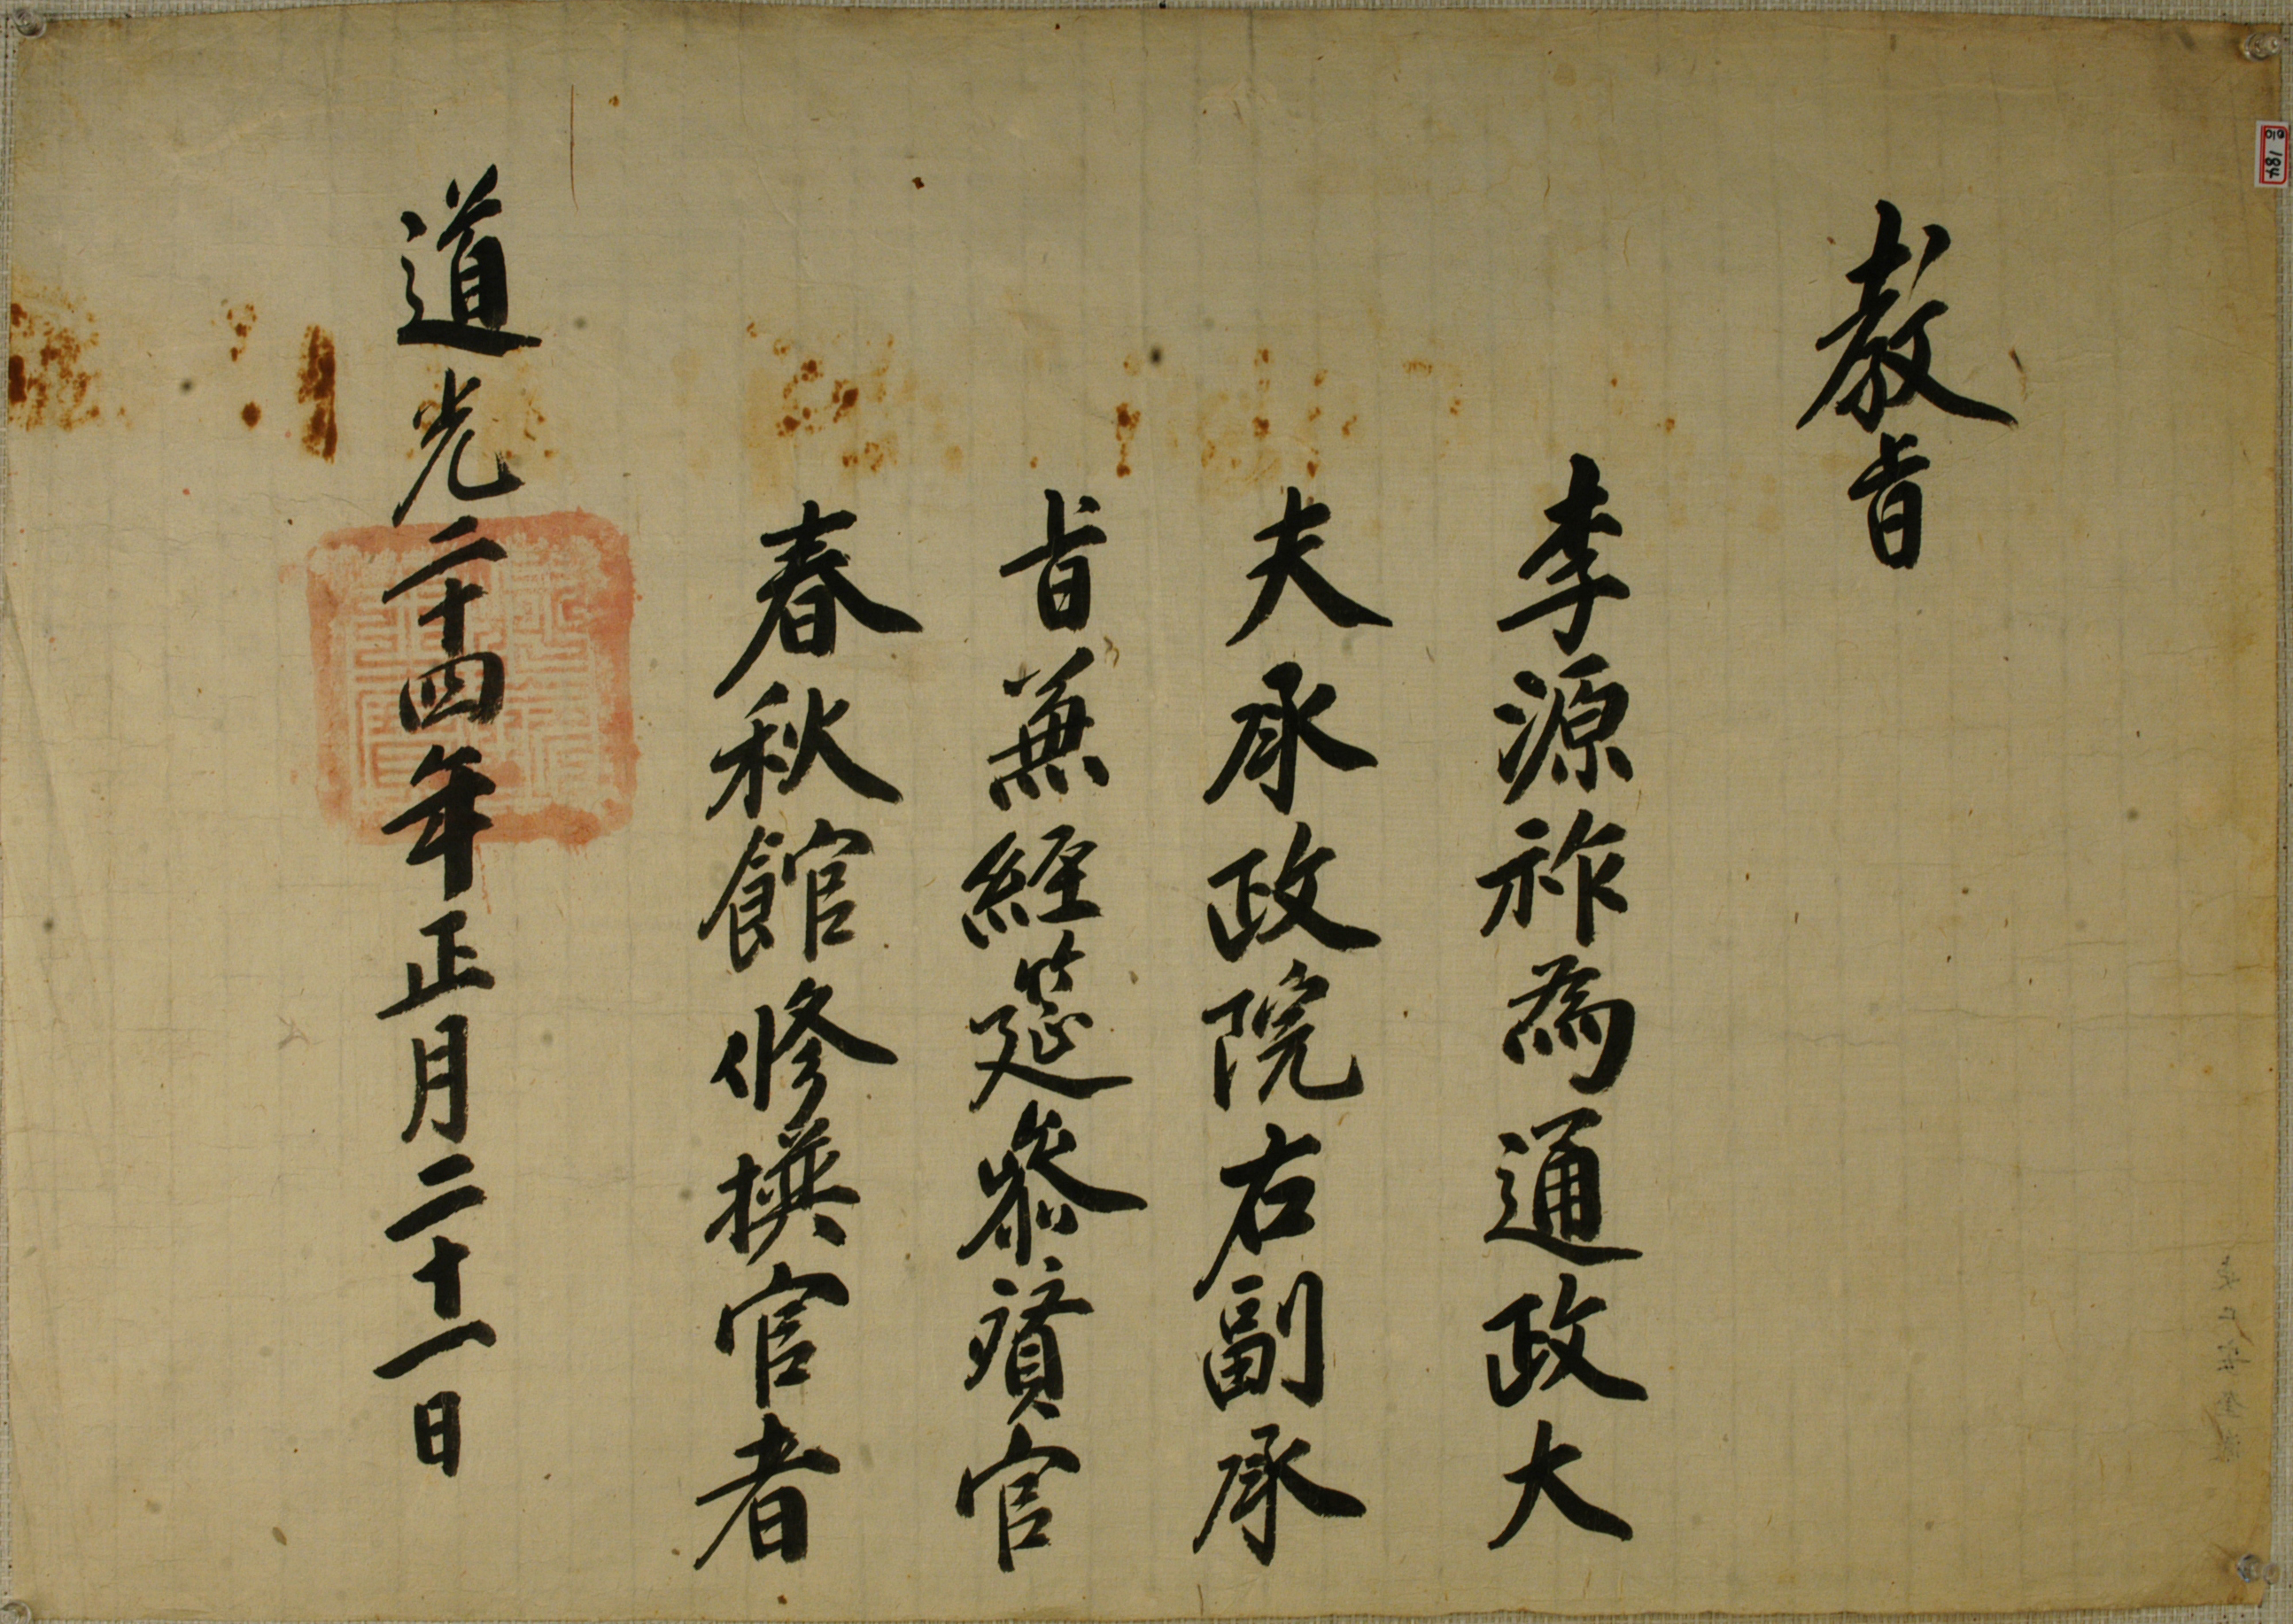 教旨
李源祚爲通政大
夫承政院右副承
旨兼經筵參贊官
春秋館修撰官者
道光二十四年正月二十一日
184